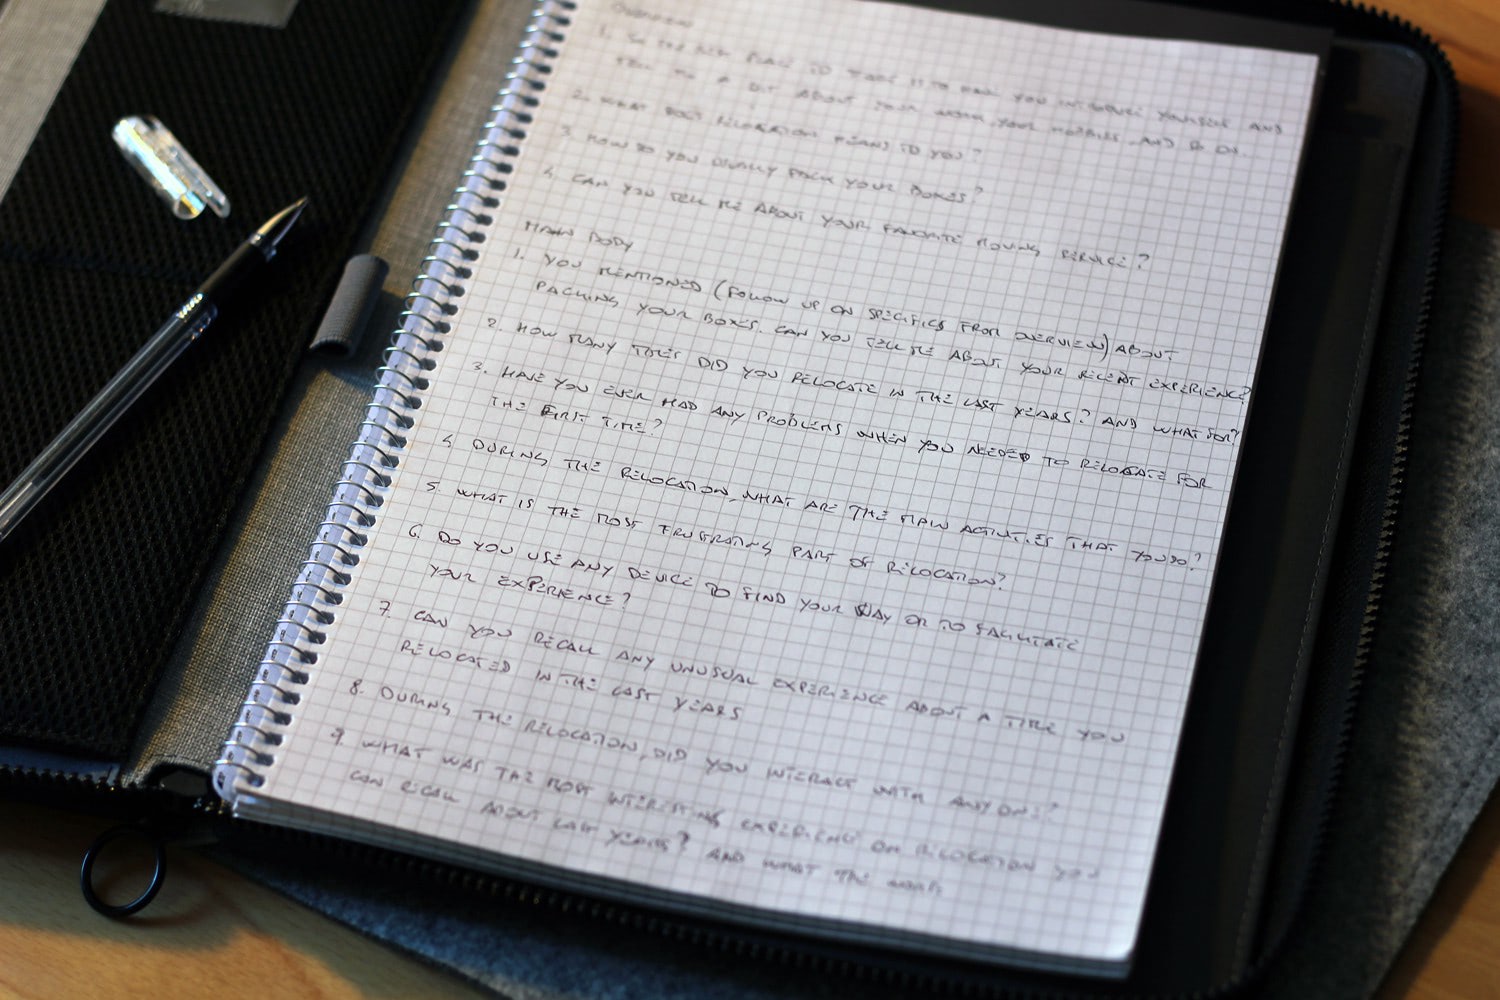 Overview
1. SO THE BEST PLACE TO START IS TO HAVE YOU INTRODUCE YOURSELF AND
TELL ME A BIT ABOUT YOUR WORK, YOUR HOBBIES, AND SO ON.
2. WHAT DOES RELOCATION MEANS TO YOU?
3. HOW DO YOU USUALLY PACK YOUR BOXES?
4. CAN YOU TELL ME ABOUT YOUR FAVORITE MOVING SERVICE?
MAIN BODY
1. YOU MENTIONED (FOLLOW UP ON SPECIFICS FROM OVERVIEW) ABOUT
PACKING YOUR BOXES. CAN YOU TELL ME ABOUT YOUR RECENT EXPERIENCE?
2. HOW MANY TIMES DID YOU RELOCATE IN THE LAST YEARS? AND WHAT FOR?
3. HAVE YOU EVER HAD ANY PROBLEMS WHEN YOU NEEDED TO RELOCATE FOR
THE FIRST TIME?
4. DURING THE RELOCATION, WHAT ARE THE MAIN ACTIVITIES THAT YOU DO?
5. WHAT IS THE MOST FRUSTRATING PART OF RELOCATION?
6. DO YOU USE ANY DEVICE TO FIND YOUR WAY OR TO FACILITATE
YOUR EXPERIENCE?
7. CAN YOU RECALL ANY UNUSUAL EXPERIENCE ABOUT A TIME YOU
RELOCATED IN THE LAST YEARS
8. DURING THE RELOCATION, DID YOU INTERACT WITH ANYONE?
9. WHAT WAS THE MOST INTERESTING EXPERIENCE ON RELOCATION YOU
CAN RECALL ABOUT LAST YEARS? AND WHAT THE